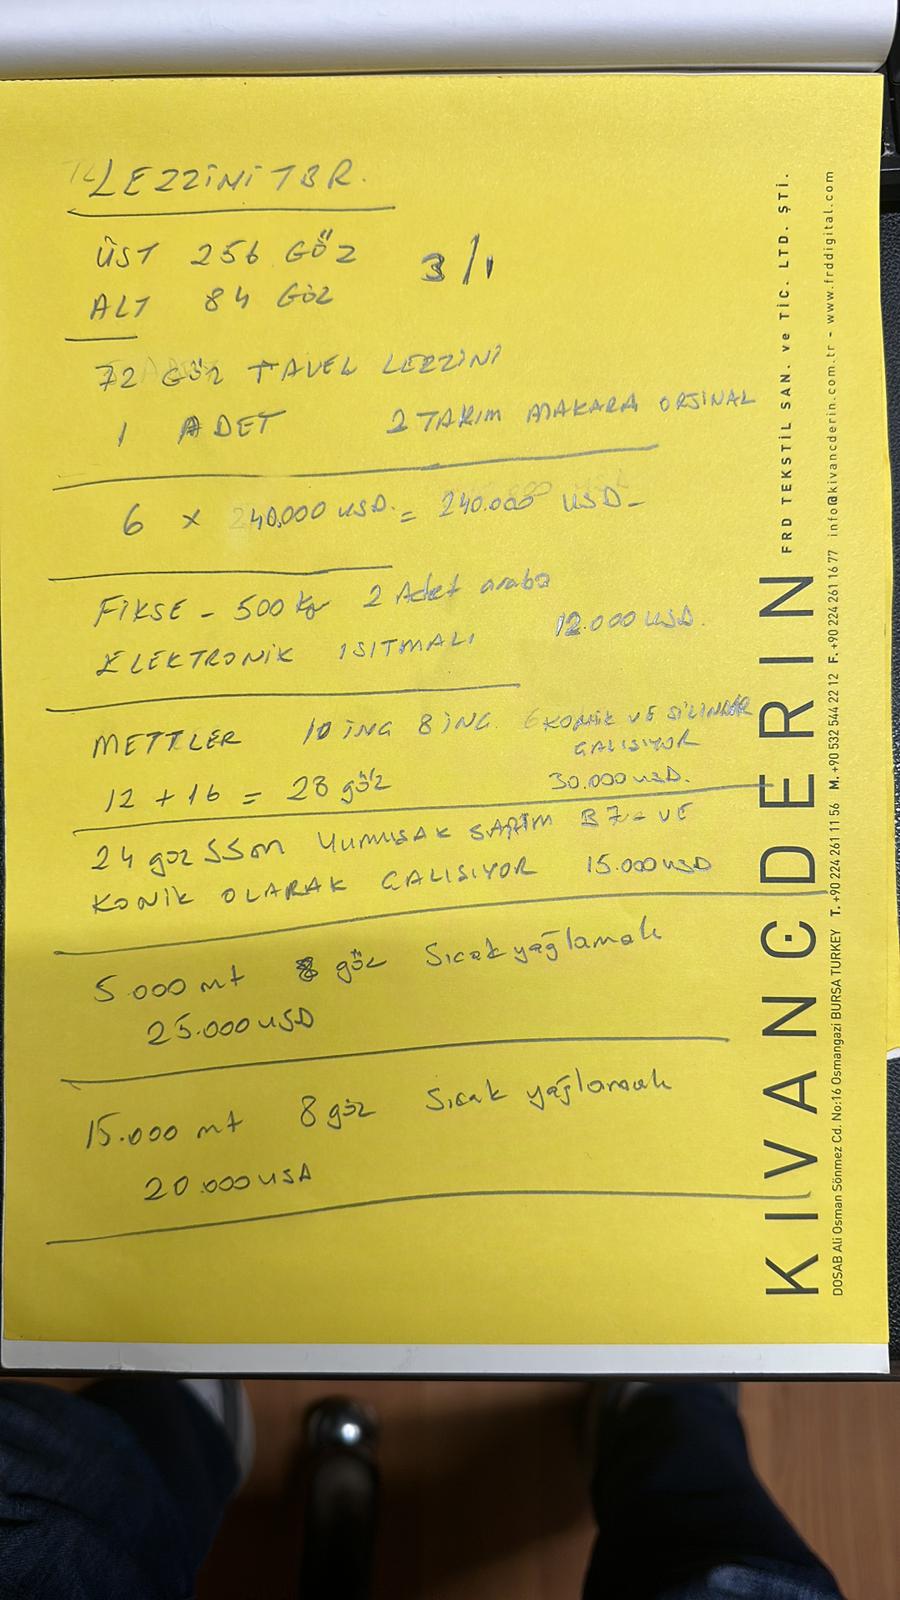 LEZZİNİ TBR.
ÜST 256 GÖZ 3/1
ALT 84 GÖZ
72 GÖZ TAVEL LEZZİNİ
1 ADET 2 TAKIM MAKARA ORJİNAL
6 x 40.000 USD. = 240.000 USD-
FİKSE - 500 Kg 2 Adet araba
ELEKTRONİK ISITMALI 12.000 USD.
METTLER 10 İNG 8 İNG 6 KONİK VE SİLİNDİR
ÇALISIYOR
12 + 16 = 28 göz 30.000 USD.
24 göz SSM YUMUSAK SARIM B7- VE
KONİK OLARAK CALISIYOR 15.000 USD
5.000 mt 8 göz Sıcak yağlamalı
25.000 USD
15.000 mt 8 göz Sıcak yağlamalı
20.000 USD
KIVANÇDERIN FRD TEKSTİL SAN. ve TİC. LTD. ŞTİ.
DOSAB Ali Osman Sönmez Cd. No:16 Osmangazi BURSA TURKEY T. +90 224 261 11 56 M. +90 532 544 22 12 F. +90 224 261 16 77 info@kivancderin.com.tr - www.frddigital.com